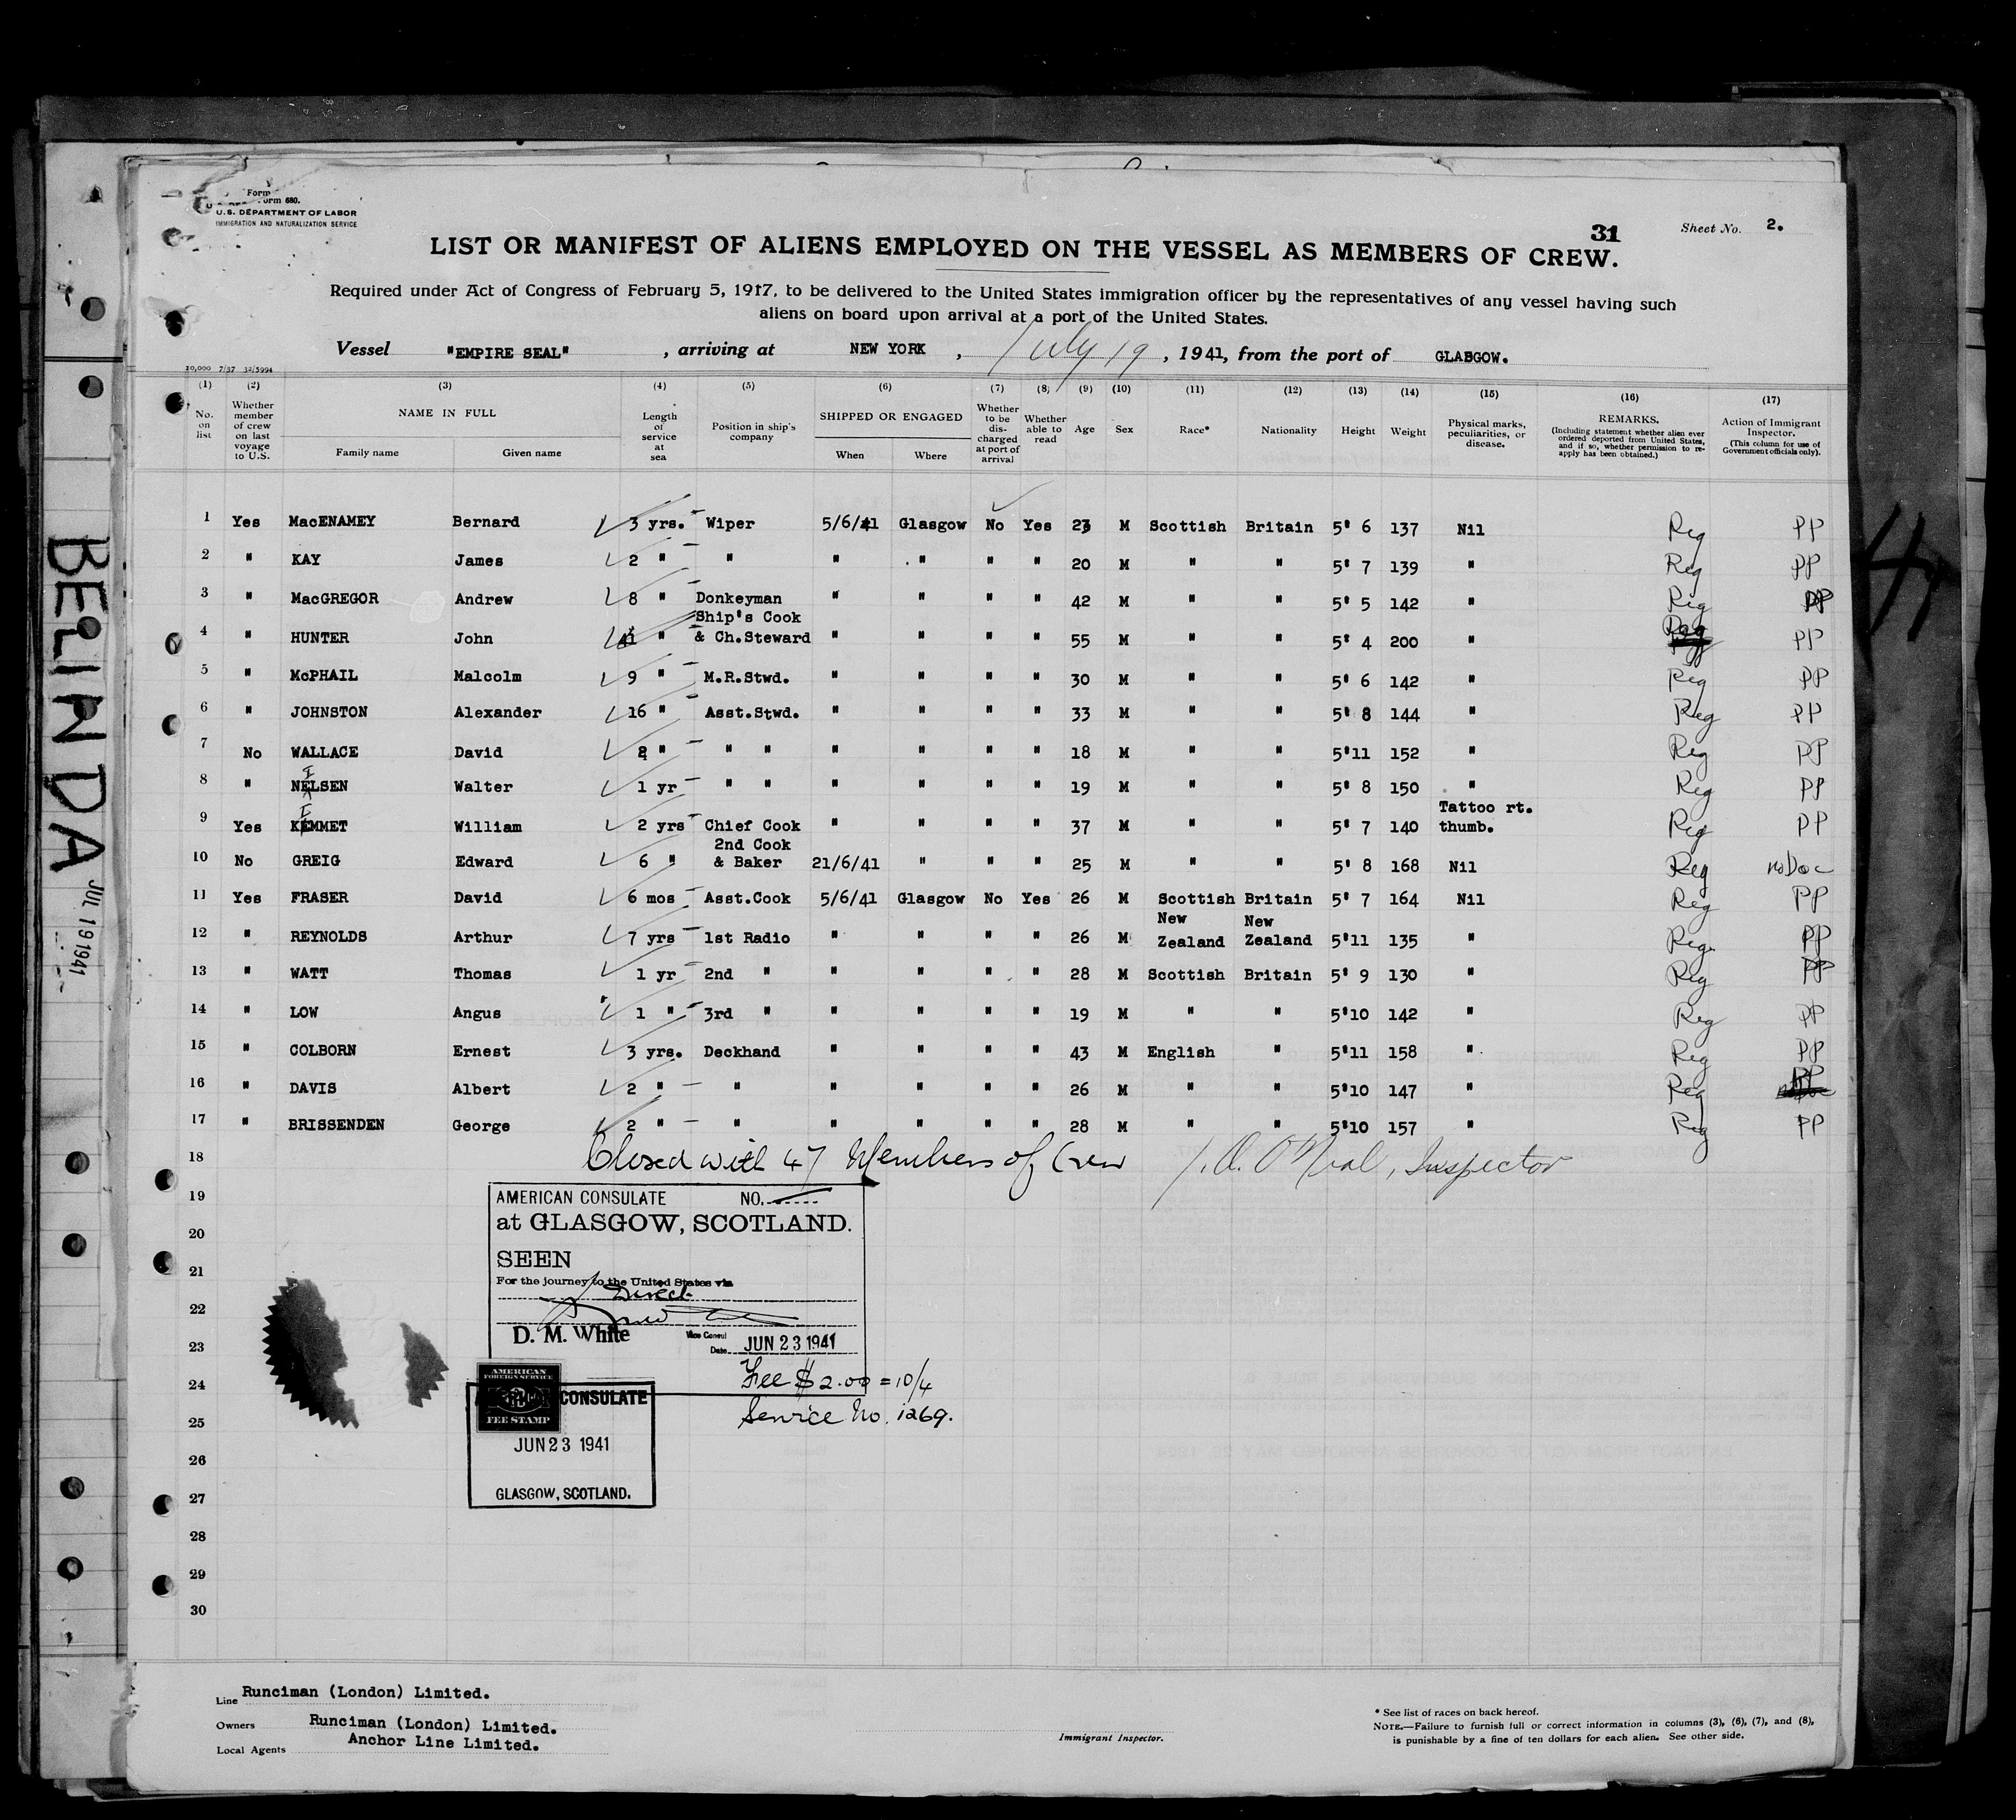 Form
orm 680.
U.S. DEPARTMENT OF LABOR
IMMIGRATION AND NATURALIZATION SERVICE
31
Sheet No. 2.
LIST OR MANIFEST OF ALIENS EMPLOYED ON THE VESSEL AS MEMBERS OF CREW.
Required under Act of Congress of February 5, 1917, to be delivered to the United States immigration officer by the representatives of any vessel having such
aliens on board upon arrival at a port of the United States.
Vessel "EMPIRE SEAL" , arriving at NEW YORK , July 19 , 1941, from the port of GLASGOW.
10,000 7/37 32/5994
(1) (2) (3) (4) (5) (6) (7) (8) (9) (10) (11) (12) (13) (14) (15) (16) (17)
No. on list
Whether member of crew on last voyage to U.S.
NAME IN FULL
Family name Given name
Length of service at sea
Position in ship's company
SHIPPED OR ENGAGED
When Where
Whether to be discharged at port of arrival
Whether able to read
Age
Sex
Race*
Nationality
Height
Weight
Physical marks, peculiarities, or disease.
REMARKS.
(Including statement whether alien ever ordered deported from United States, and if so, whether permission to re-apply has been obtained.)
Action of Immigrant Inspector.
(This column for use of Government officials only).
1 Yes MacENAMEY Bernard 3 yrs. Wiper 5/6/41 Glasgow No Yes 23 M Scottish Britain 5' 6 137 Nil Reg PP
2 " KAY James 2 " " " " " " 20 M " " 5' 7 139 " Reg PP
3 " MacGREGOR Andrew 8 " Donkeyman " " " " 42 M " " 5' 5 142 " Reg PP
4 " HUNTER John " Ship's Cook & Ch.Steward " " " " 55 M " " 5' 4 200 " Reg PP
5 " McPHAIL Malcolm 9 " M.R.Stwd. " " " " 30 M " " 5' 6 142 " Reg PP
6 " JOHNSTON Alexander 16 " Asst.Stwd. " " " " 33 M " " 5' 8 144 " Reg PP
7 No WALLACE David 2 " " " " " " " 18 M " " 5'11 152 " Reg PP
8 " NEISEN Walter 1 yr " " " " " " 19 M " " 5' 8 150 " Reg PP
9 Yes KEMMET William 2 yrs Chief Cook " " " " 37 M " " 5' 7 140 Tattoo rt. thumb. Reg PP
10 No GREIG Edward 6 " 2nd Cook & Baker 21/6/41 " " " 25 M " " 5' 8 168 Nil Reg no Doc
11 Yes FRASER David 6 mos Asst.Cook 5/6/41 Glasgow No Yes 26 M Scottish Britain 5' 7 164 Nil Reg PP
12 " REYNOLDS Arthur 7 yrs 1st Radio " " " " 26 M New Zealand New Zealand 5'11 135 " Reg PP
13 " WATT Thomas 1 yr 2nd " " " " " 28 M Scottish Britain 5' 9 130 " Reg PP
14 " LOW Angus 1 " 3rd " " " " " 19 M " " 5'10 142 " Reg PP
15 " COLBORN Ernest 3 yrs. Deckhand " " " " 43 M English " 5'11 158 " Reg PP
16 " DAVIS Albert 2 " " " " " " 26 M " " 5'10 147 " Reg PP
17 " BRISSENDEN George 2 " " " " " " 28 M " " 5'10 157 " Reg PP
18 Closed with 47 Members of Crew O'Neal, Inspector
19
20
21
22
23
24
25
26
27
28
29
30
AMERICAN CONSULATE NO.
at GLASGOW, SCOTLAND.
SEEN
For the journey to the United States via
Direct
D. M. White Vice Consul
Date JUN 23 1941
Fee $2.00 = 10/4
Service No. 1269.
AMERICAN
FOREIGN SERVICE
FEE STAMP
CONSULATE
JUN 23 1941
GLASGOW, SCOTLAND.
Line Runciman (London) Limited.
Owners Runciman (London) Limited.
Local Agents Anchor Line Limited.
Immigrant Inspector.
* See list of races on back hereof.
NOTE.—Failure to furnish full or correct information in columns (3), (6), (7), and (8),
is punishable by a fine of ten dollars for each alien. See other side.
BELINDA
JUL 19 1941
47